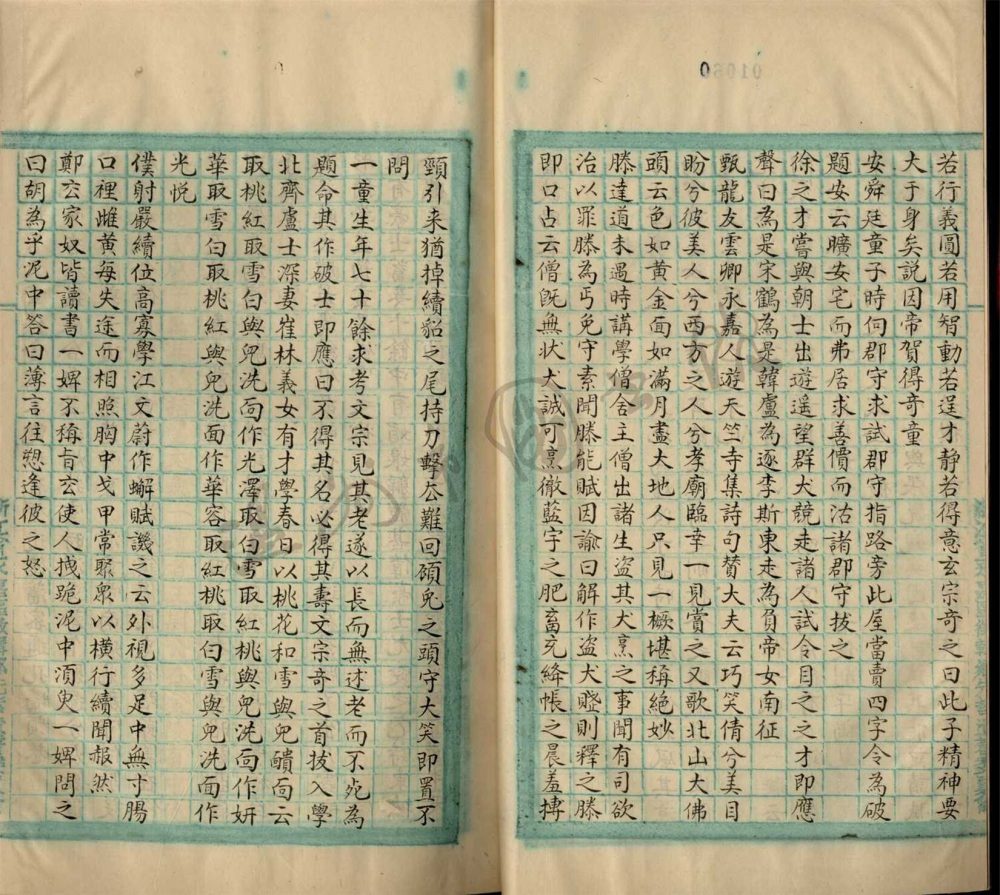 若行義圓若用智動若逞才静若得意玄宗奇之曰此子精神要
大于身矣説因帝賀得奇童
安舜廷童子時何郡守求試郡守指路旁此屋當賣四字令為破
題安云曠安宅而弗居求善價而沽諸郡守拔之
徐之才嘗與朝士出遊遥望群犬競走諸人試令目之之才即應
聲曰為是宋鶴為是韓盧為逐李斯東走為負帝女南征
甄龍友雲卿永嘉人遊天竺寺集詩句賛大夫云巧笑倩兮美目
盼兮彼美人兮西方之人兮孝廟臨幸一見賞之又歌北山大佛
頭云色如黄金面如滿月盡大地人只見一橛堪稱絶妙
滕達道未遇時講學僧舍主僧出諸生盗其犬烹之事聞有司欲
治以罪滕為丐免守素聞滕能賦因諭曰解作盗犬賦則釋之滕
即口占云僧既無状犬誠可烹徹藍宇之肥畜充絳帳之晨羞摶
頸引来猶掉續貂之尾持刀擊去難回碩兎之頭守大笑即置不
問
一童生年七十餘求考文宗見其老遂以長而無述老而不死為
題命其作破士即應曰不得其名必得其壽文宗奇之首拔入學
北齊盧士深妻崔林義女有才學春日以桃花和雪與兒靧面云
取桃紅取雪白與兒洗面作光澤取白雪取紅桃與兒洗面作妍
華取雪白取桃紅與兒洗面作華容取紅桃取白雪與兒洗面作
光悦
僕射嚴續位高寡學江文蔚作蠏賦譏之云外視多足中無寸腸
口裡雌黄每失途而相照胸中戈甲常聚衆以横行續聞赧然
鄭玄家奴皆讀書一婢不稱旨玄使人拽跪泥中須臾一婢問之
曰胡為乎泥中答曰薄言往愬逢彼之怒